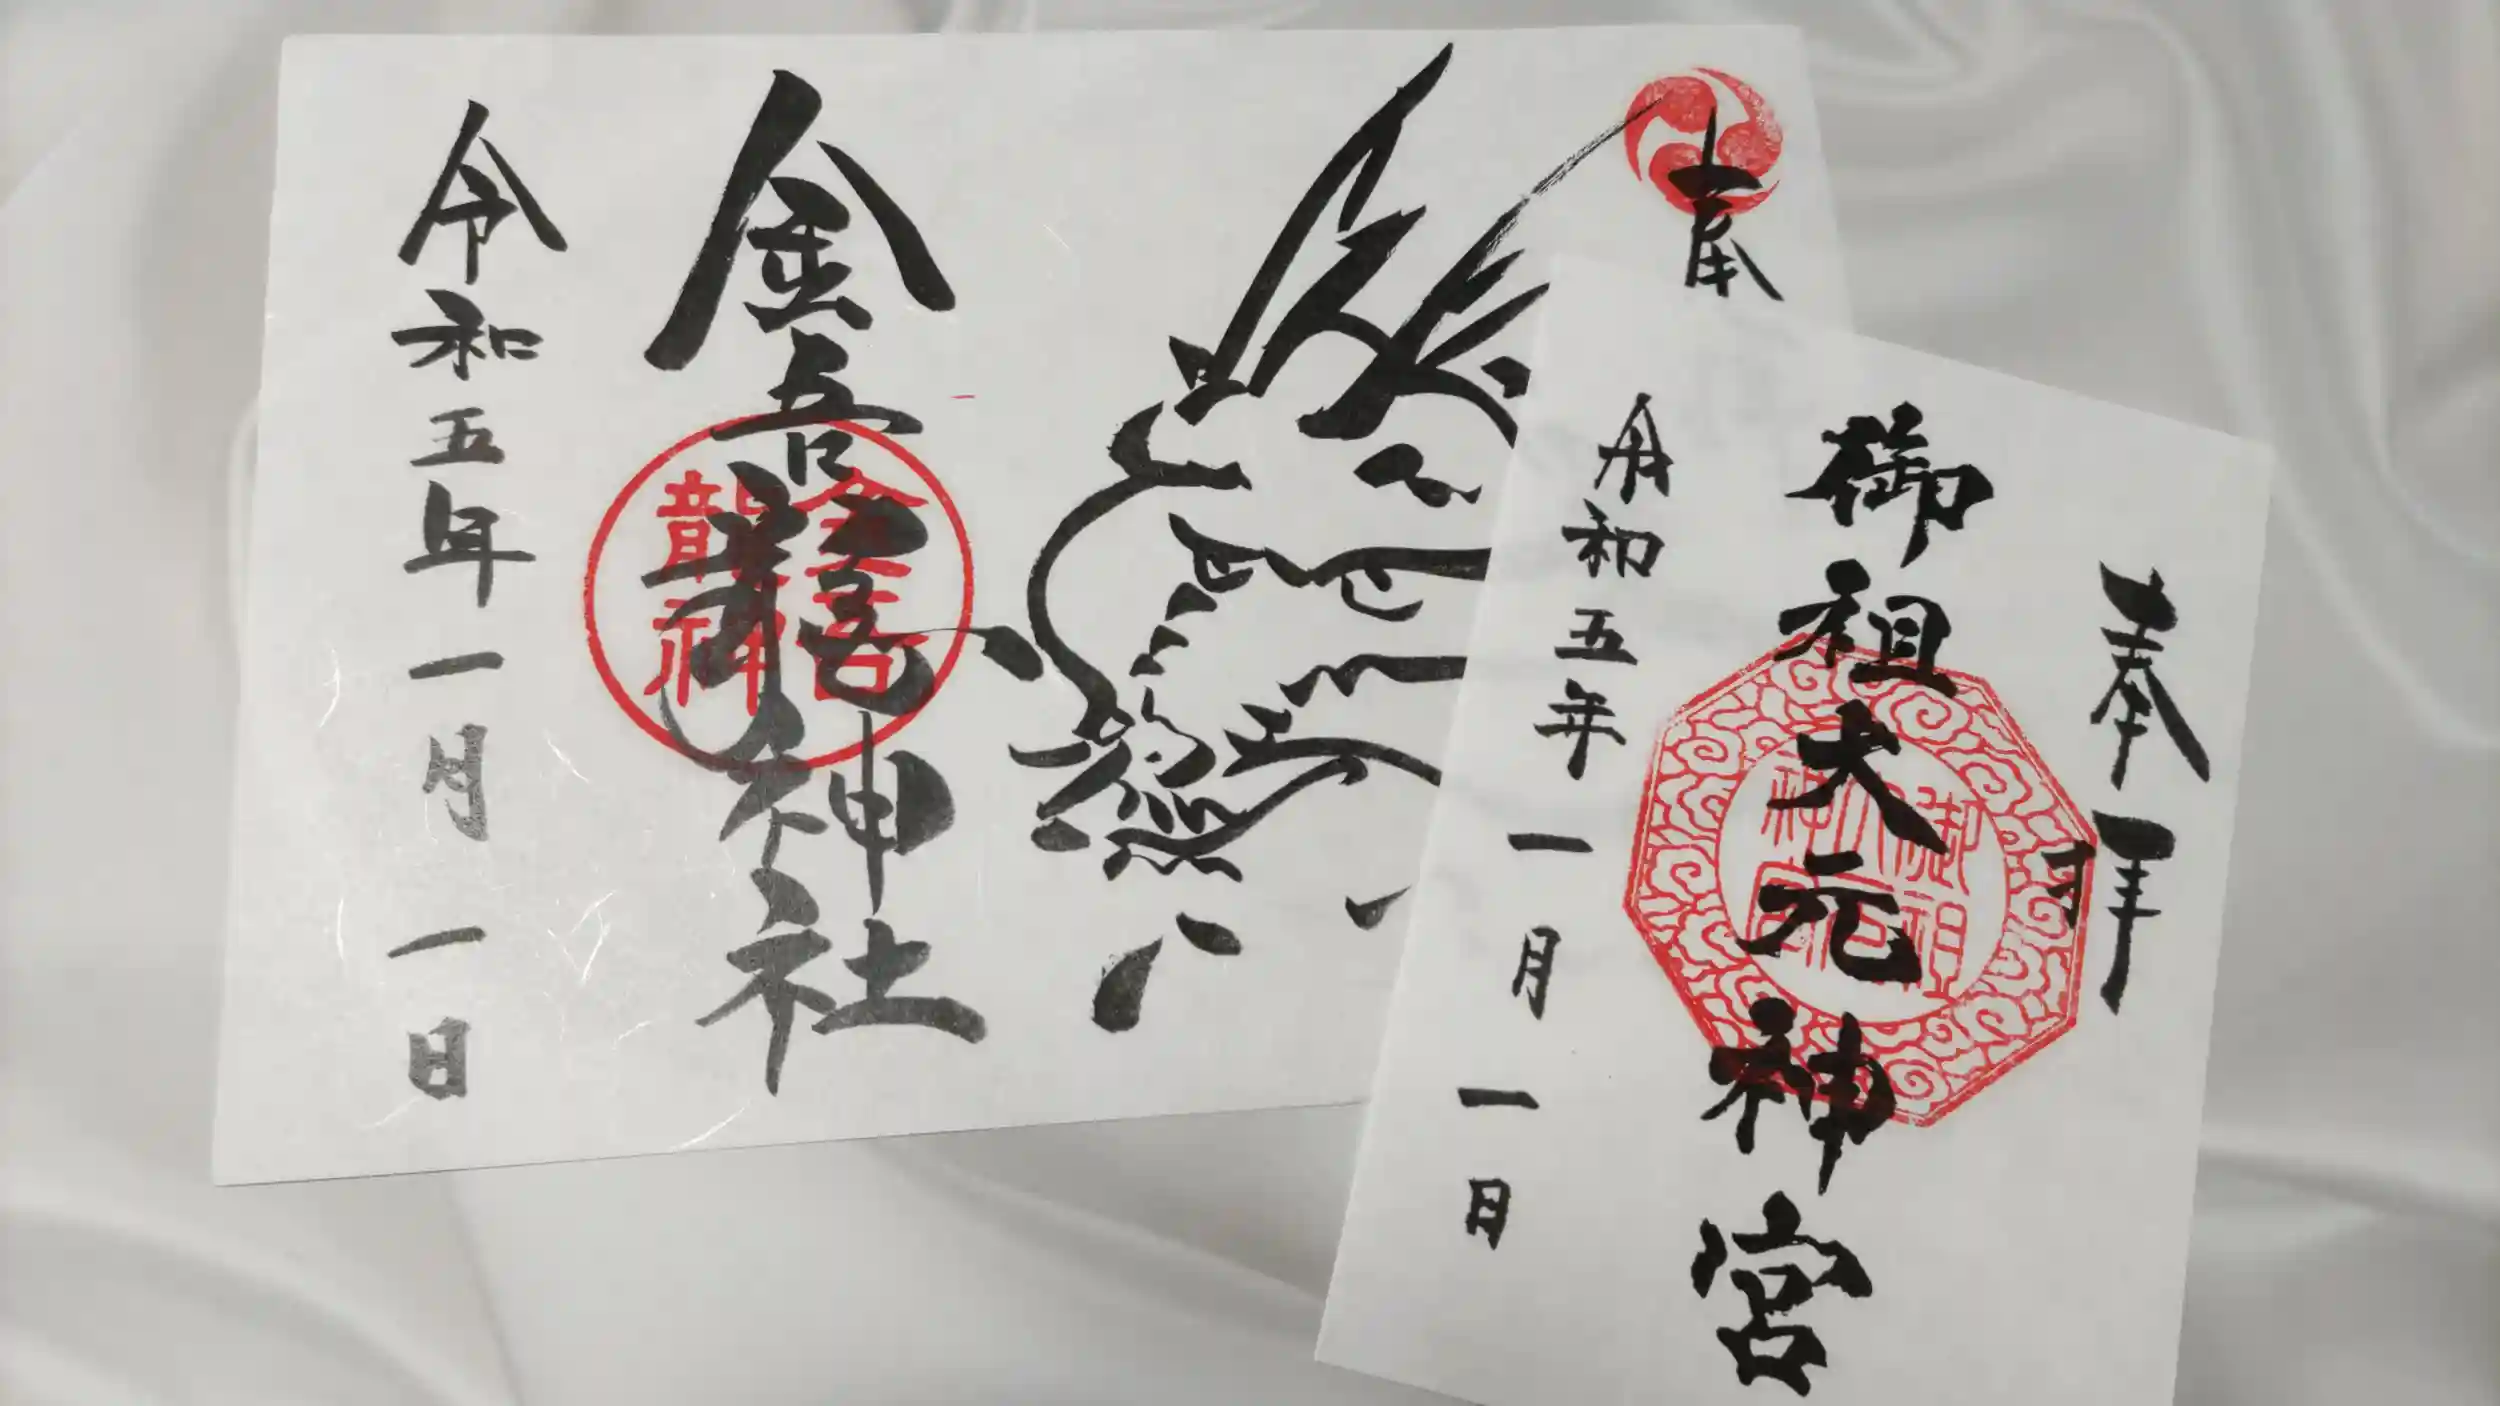 奉
金吾龍神社
金吾
龍神
令和五年一月一日
奉拝
御祖大元神宮
令和五年一月一日